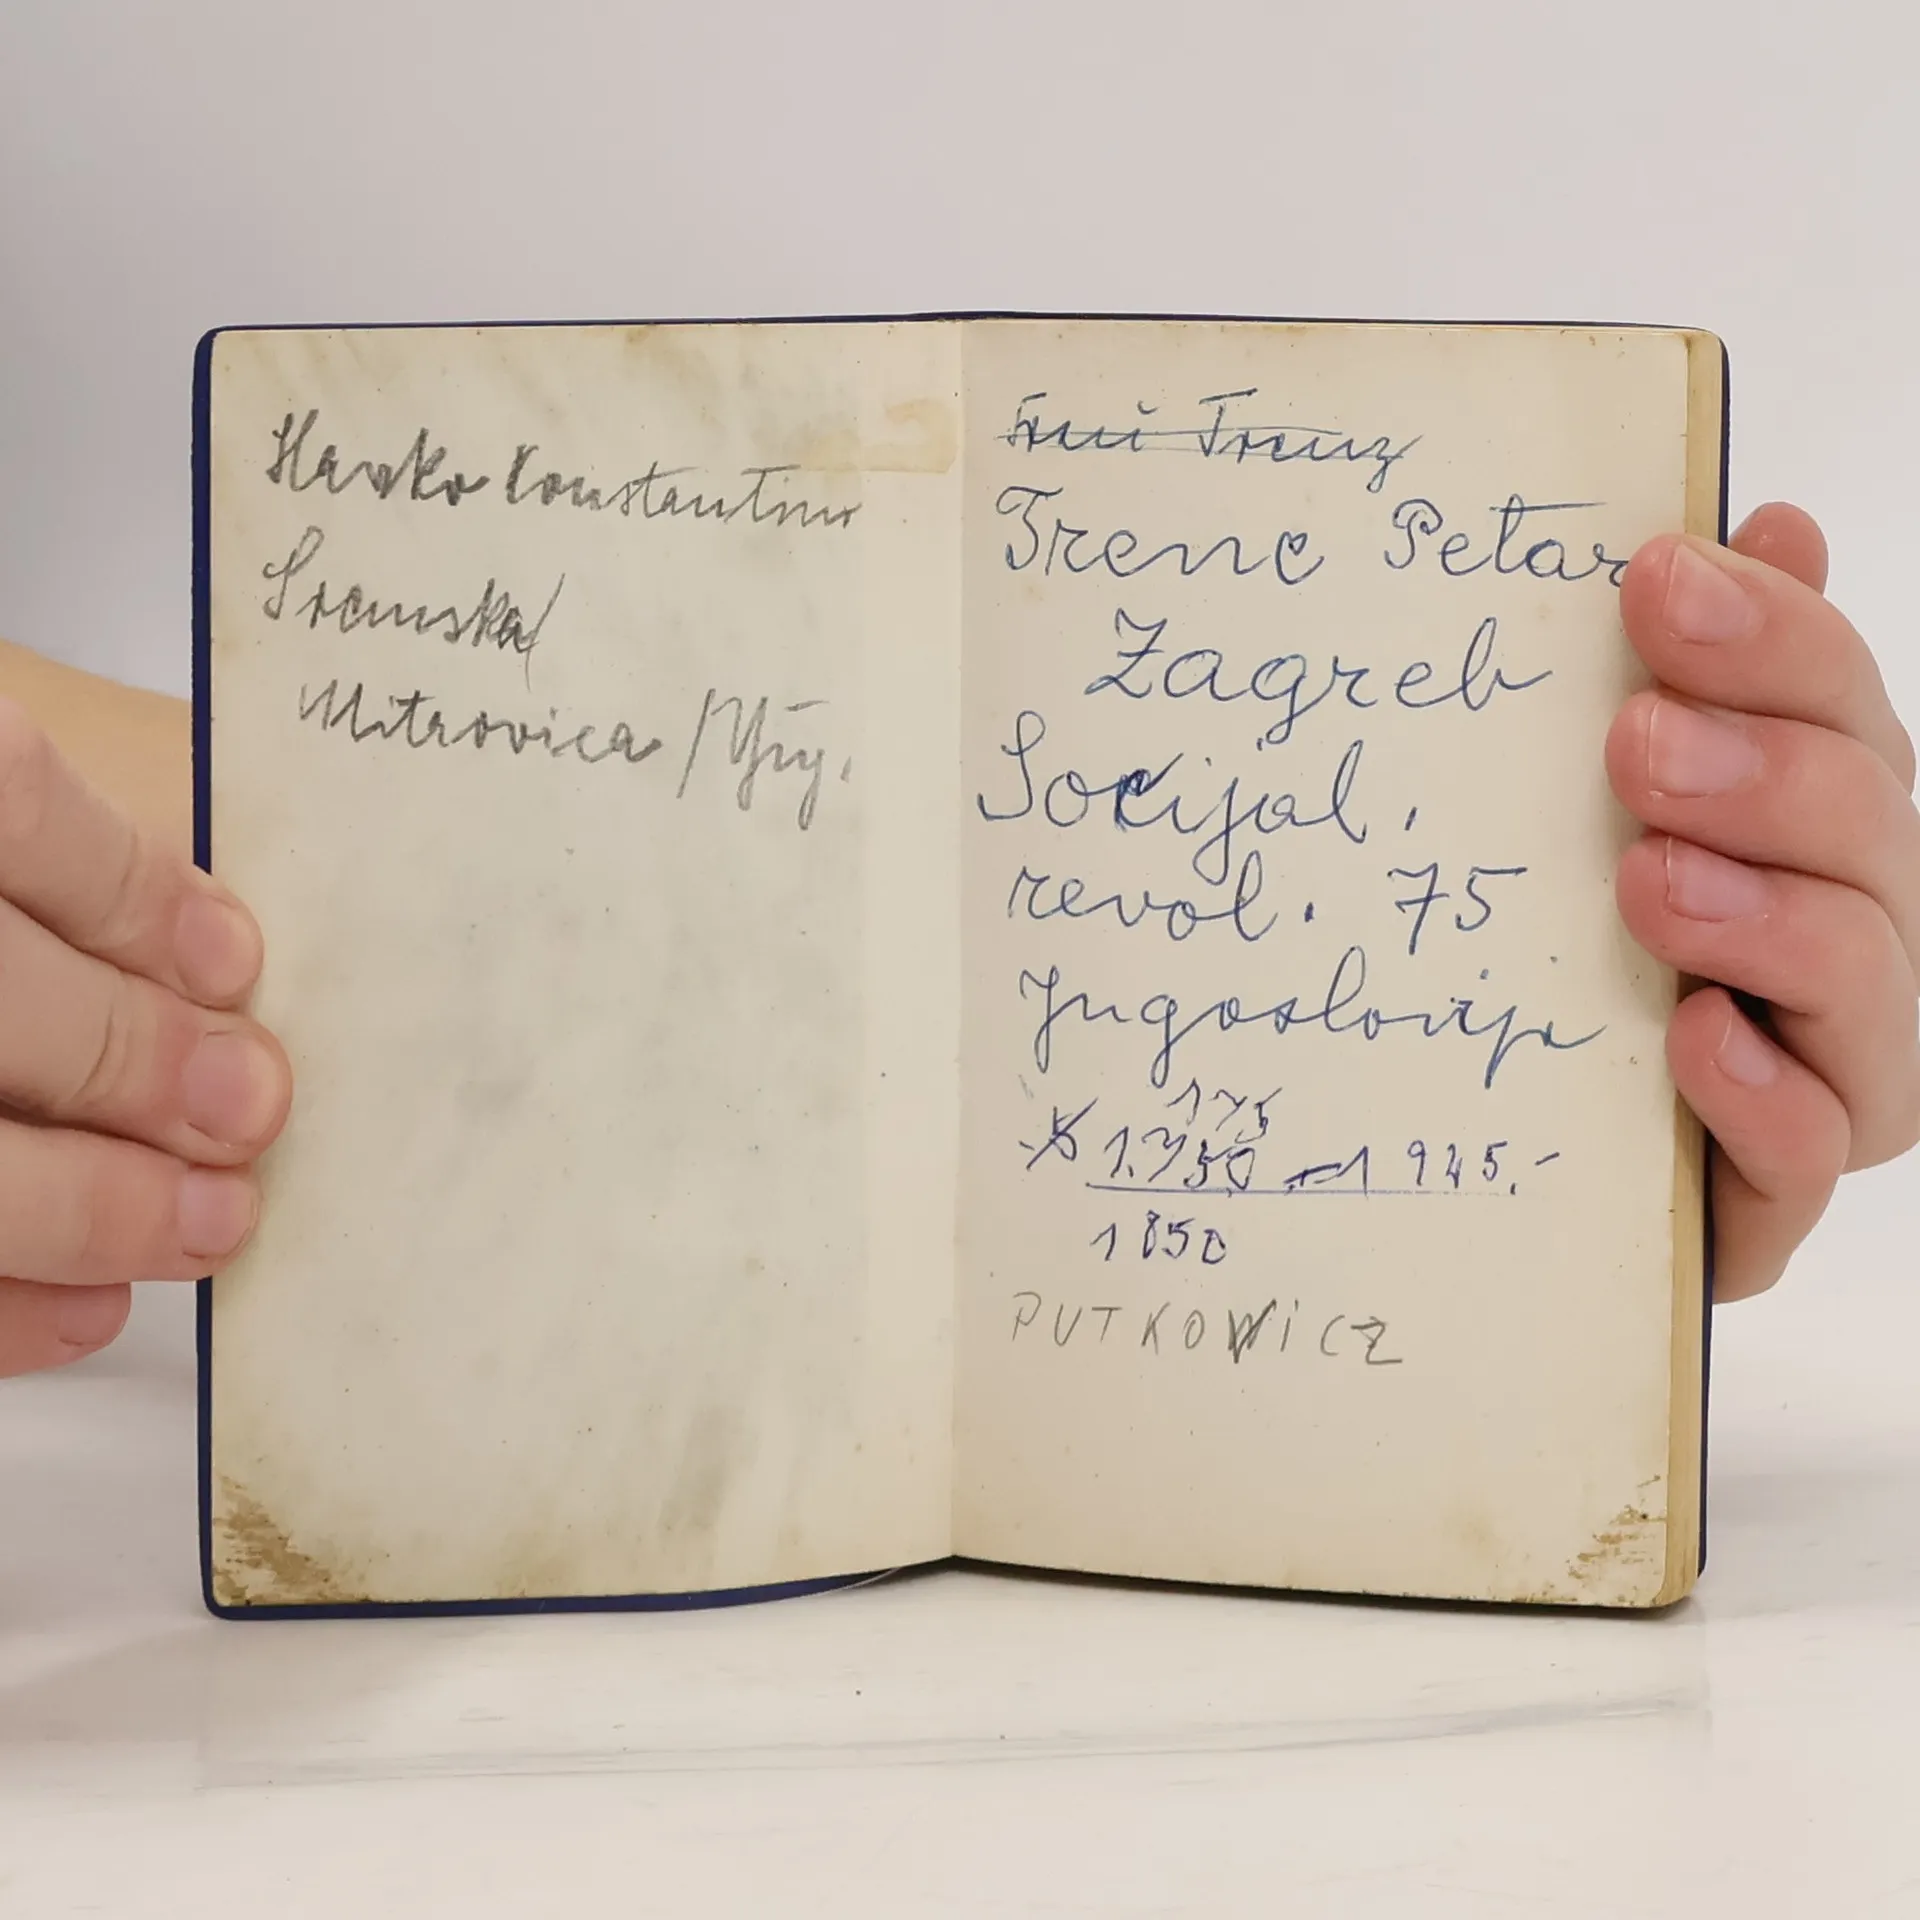 Havko Konstantin
Sremska
Mitrovica / Jug.
Trenc Petar
Zagreb
Socijal.
revol. 75
Jugoslavija
175
1.750 1 925.-
1850
PUTKOWiCZ